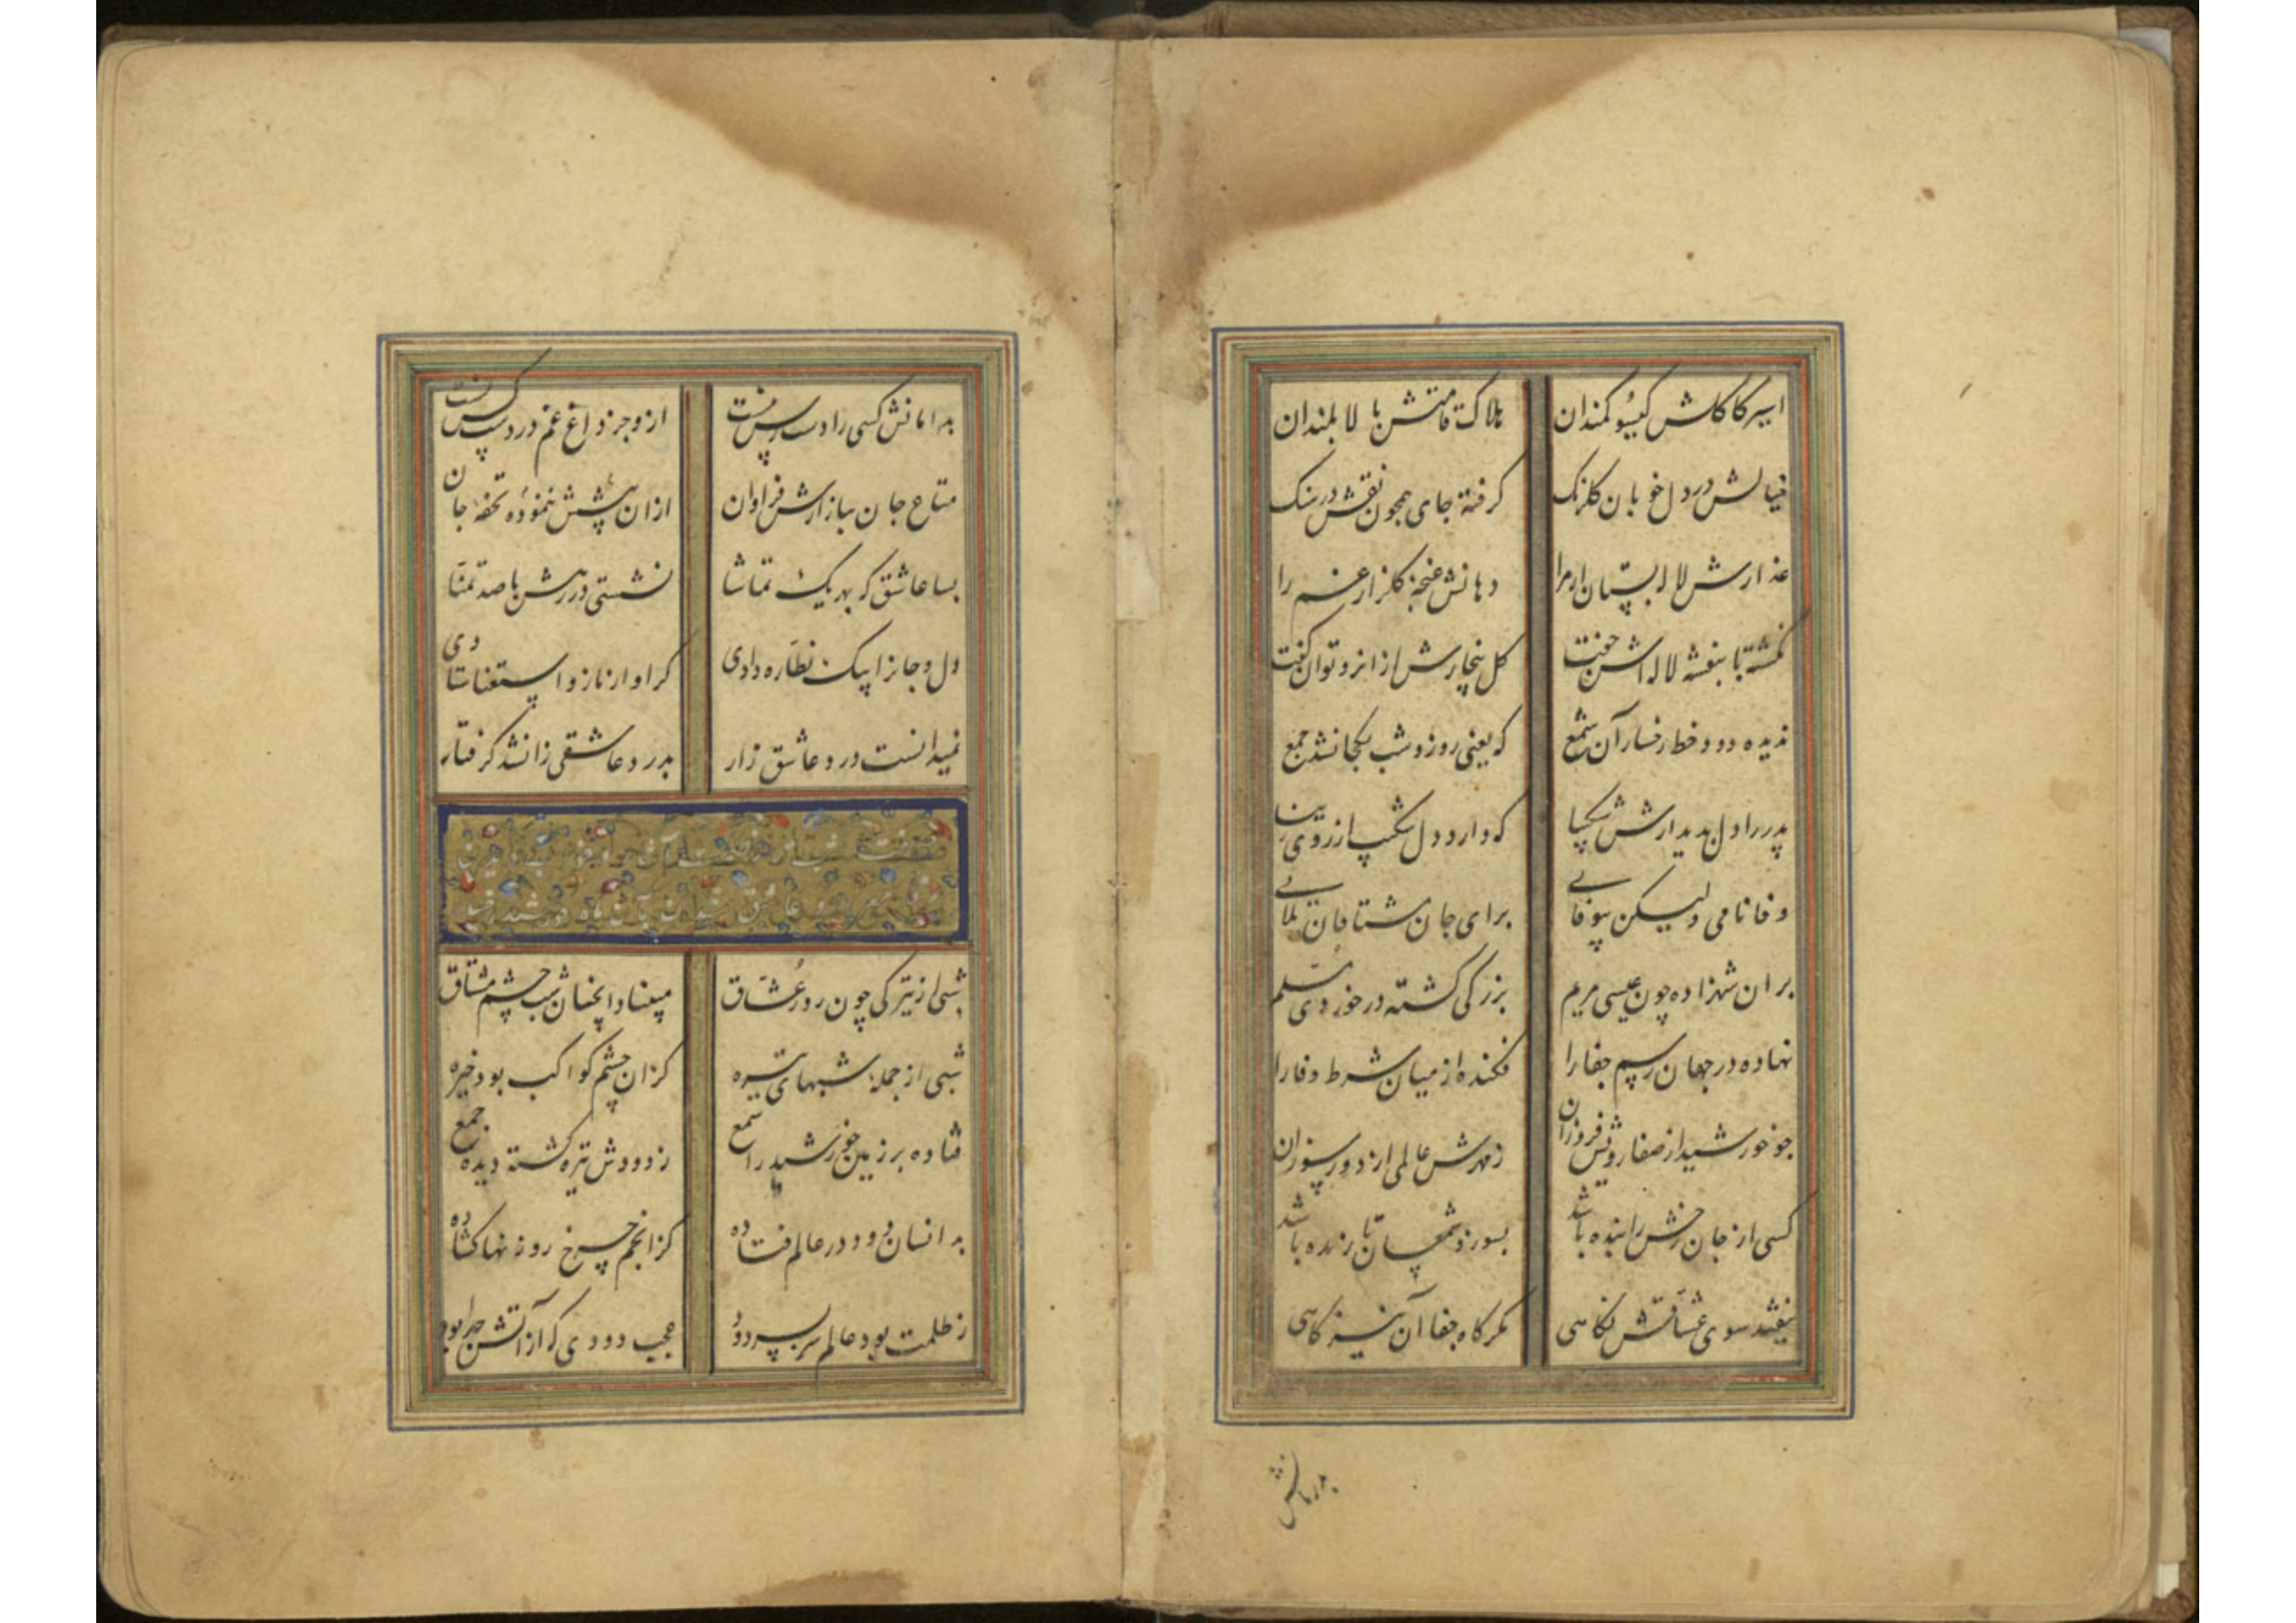 اسیر کاکلش کیسو کمندان هلاک قامتش بالا بلندان
خیالش در دل خوبان کلرنک کرفته جای همچون نقش در سنک
عذارش لاله بستان ارم را دهانش غنچه کلزار غم را
نکشته با بنفشه لاله اش جفت کل بیخارش از انرو توان کفت
ندیده دود خط رخسار آن شمع که یعنی روز و شب یکجا نشد جمع
پدر را دل بدیدارش شکیبا که دارد دل شکیب از روی زیبا
وفا نامی ولیکن بیوفایی برای جان مشتاقان بلایی
بر ان شهزاده چون عیسی مریم بزرکی کشته در خوردی مسلم
نهاده در جهان رسم جفا را فکنده از میان شرط وفا را
چو خورشید از صفا رویش فروزان زمهرش عالمی از دور سوزان
کسی از جان رخش را بنده باشد بسوزد شمعسان تا زنده باشد
نیفکند سوی عشاقش نکاهی مکر کاه جفا آن نیز کاهی
بدامانش
بدامانش کسی را دست رس نیست ازو جز داغ غم در دست کس نیست
متاع جان ببازارش فراوان ازان پیشش نموده تحفه جان
بسا عاشق که بهر یک تماشا نشستی در رهش با صد تمنا
دل و جانرا بیک نظاره دادی کر او از ناز و استغنا ستادی
نمیدانست درد عاشق زار بدرد عاشقی زانشد کرفتار
صفت شب
شبی از تیرکی چون روز عشاق
شبی از جمله شبهای تیره کزان چشم کواکب بود خیره
فتاده بر زمین خورشید را شمع ز دودش تیره کشته دیده جمع
بد انسان دود در عالم فتاده کز انجم چرخ روزنها کشاده
ز ظلمت بود عالم سر بسر دود عجب دودی که از آتش جدا بود